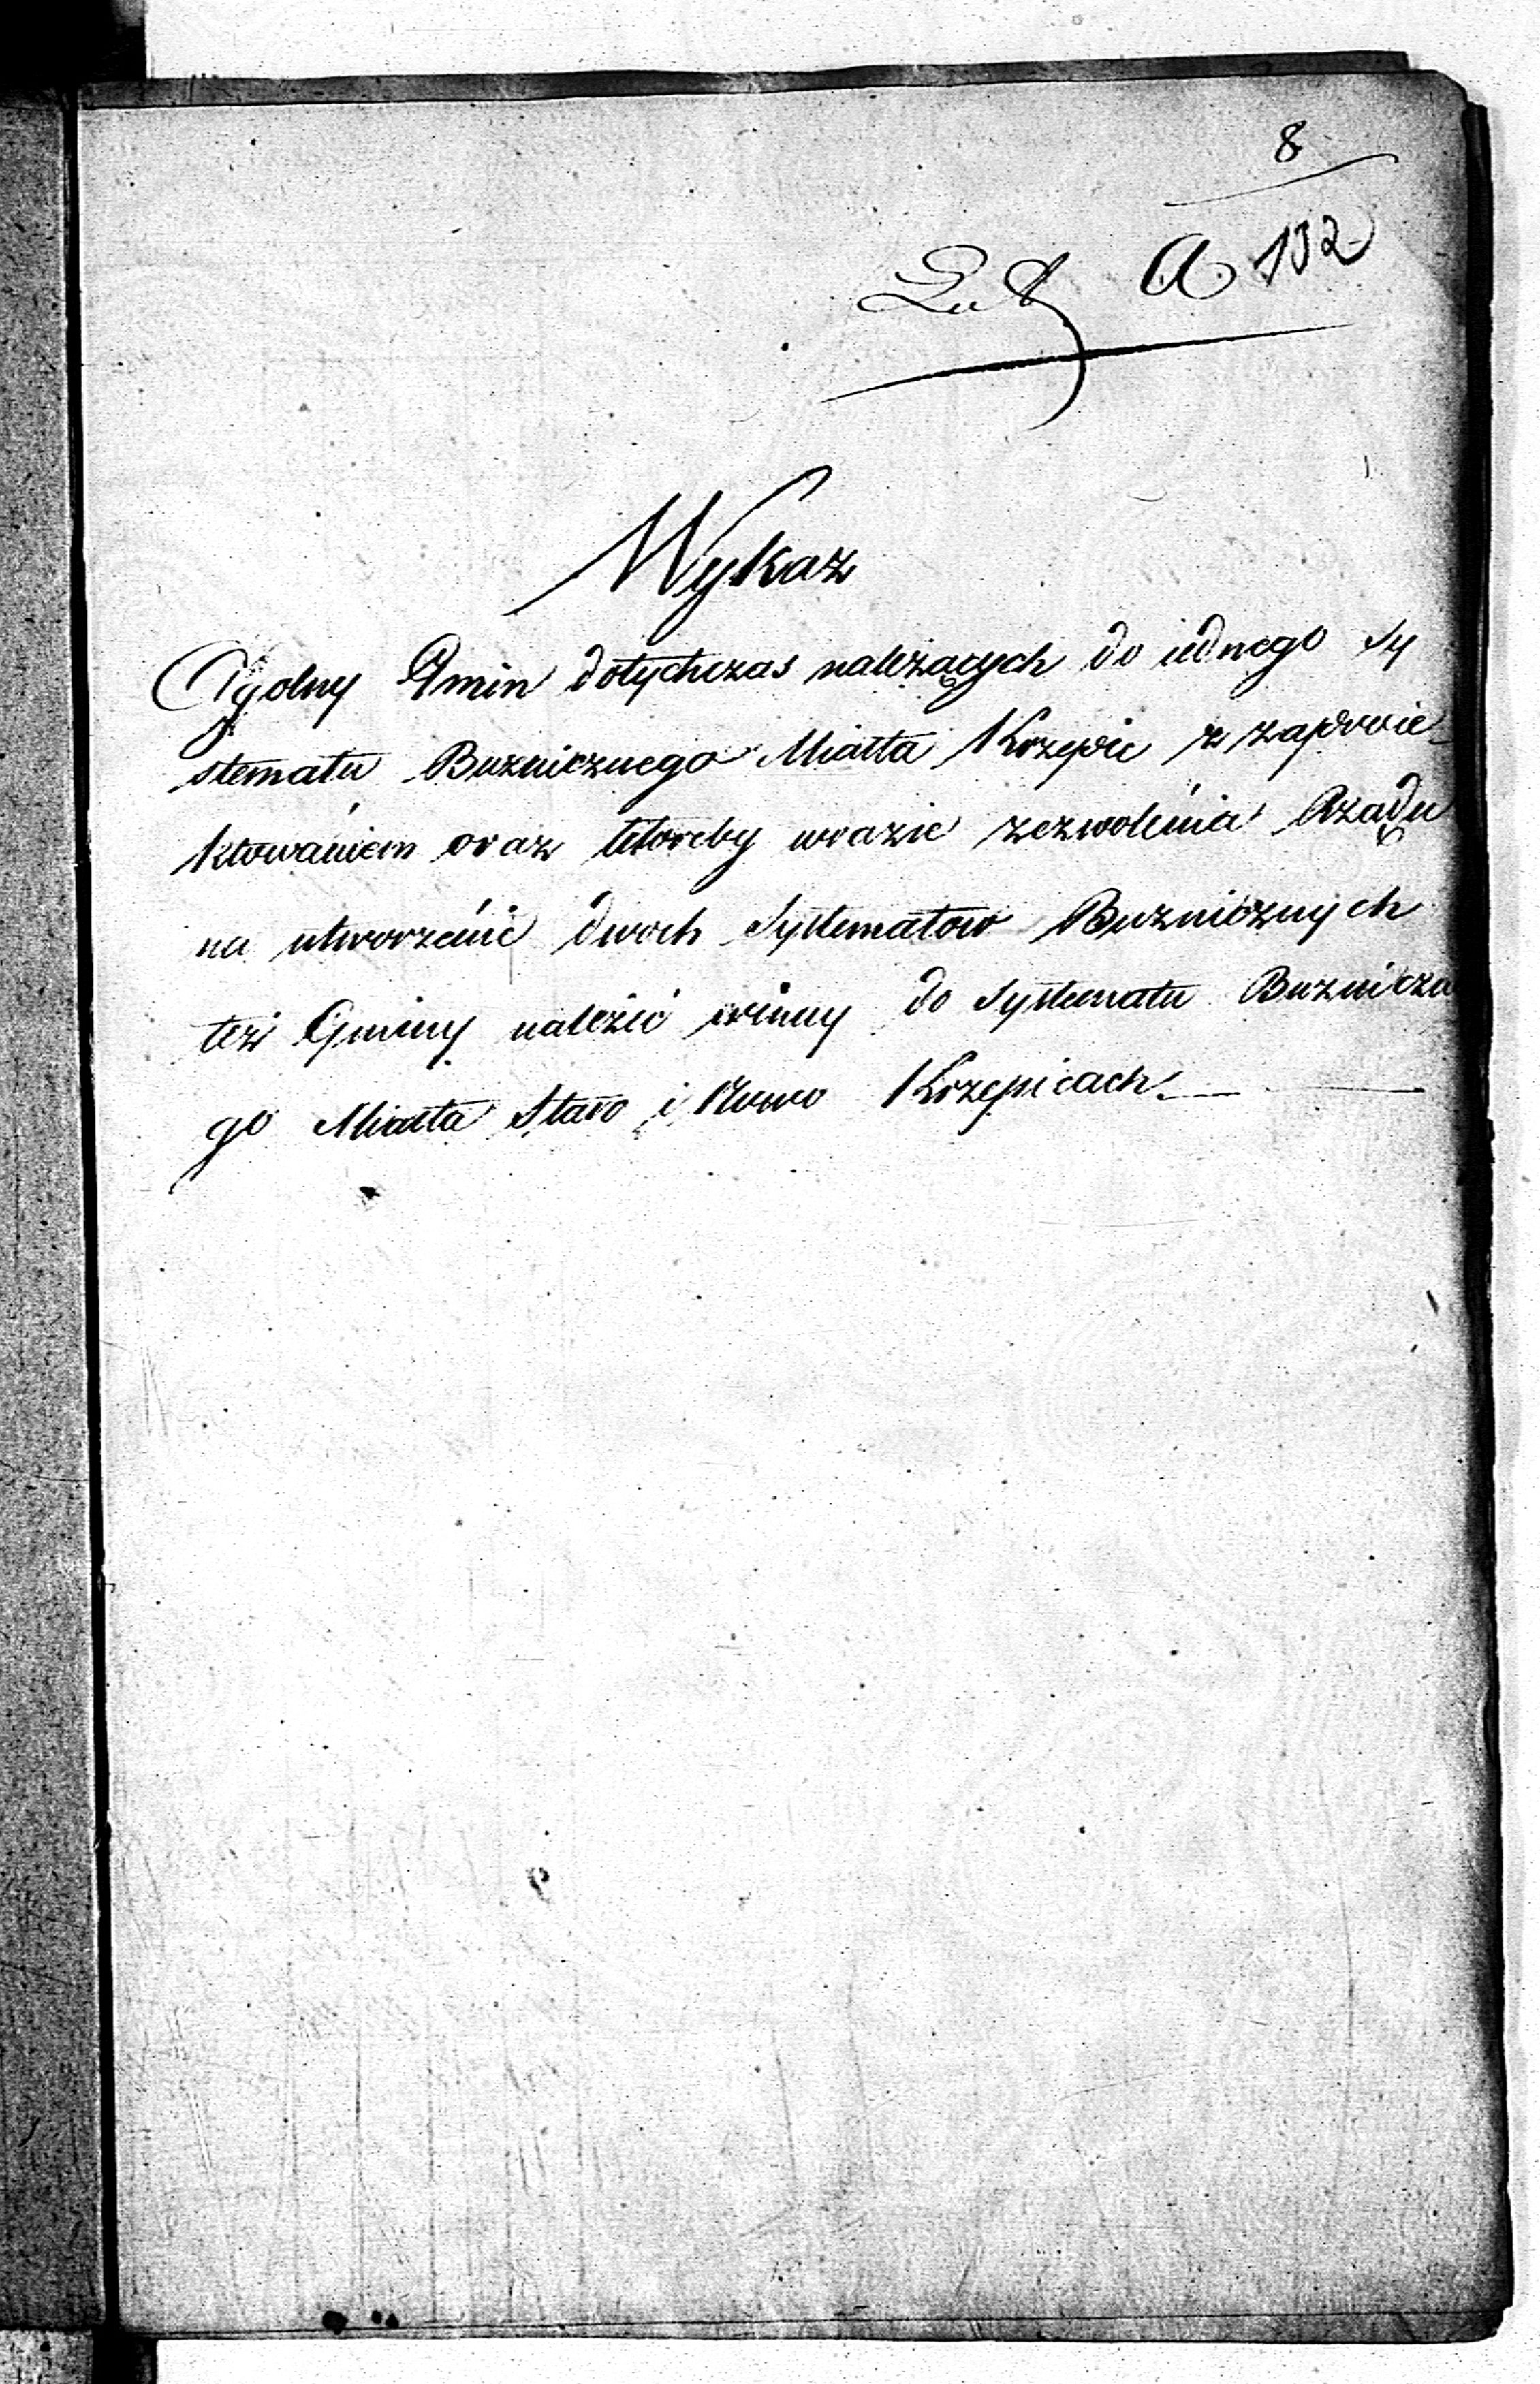 8
Lit A 132
Wykaz
Ogolny Gmin dotychczas należących do iednego Sy
stematu Buznicznego Miasta Krzepic z zaproie
ktowaniem oraz któreby wrazie zezwolenia Rządu
na utworzenie dwoch Systematow Buzniczych
też Gminy należeć winny do Systematu Buznicze
go Miasta Staro i Nowo Krzepicach